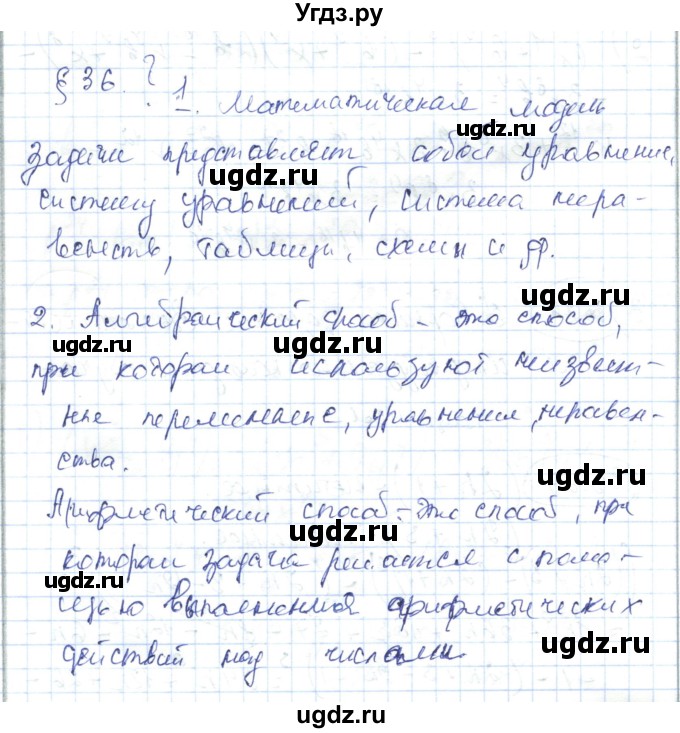 Угдз.ру
§ 36. ? 1. Математическая модель
ugdz.ru
задачи представляет собой уравнение,
ugdz.ru
систему уравнений, система нера-
ugdz.ru
венств, таблицы, схемы и др.
ugdz.ru
2. Алгебраический способ - это способ,
ugdz.ru
при котором используют неизвест-
ugdz.ru
ные переменные, уравнения, неравен-
ства.
ugdz.ru
Арифметический способ - это способ, при
ugdz.ru
котором задача решается с помо-
ugdz.ru
щью выполнения арифметических
ugdz.ru
действий над числами.
ugdz.ru
ugdz.ru